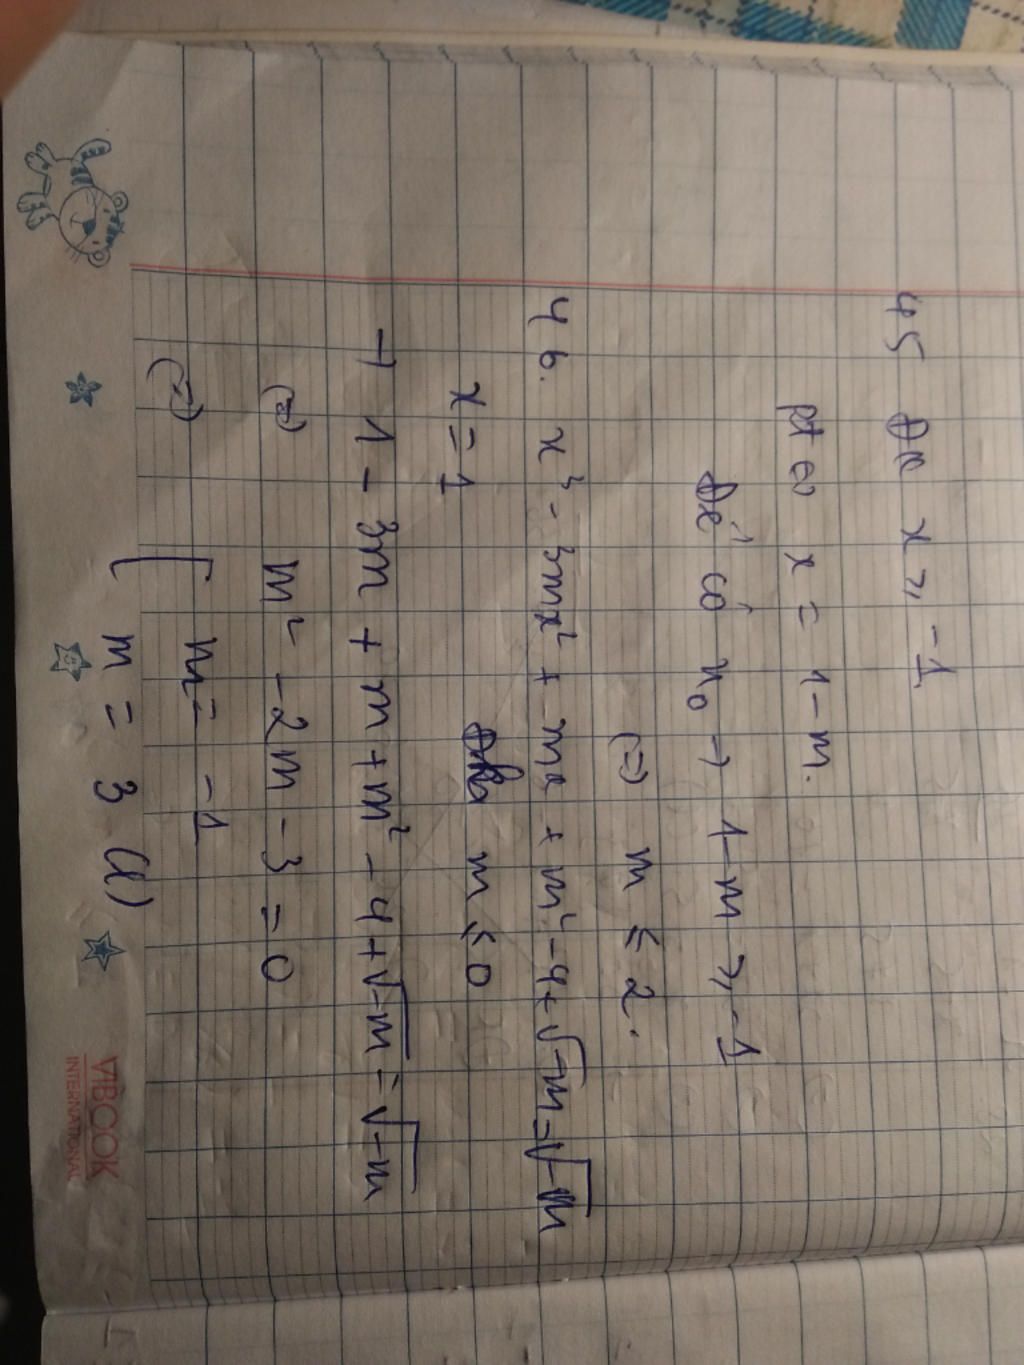 45 Đk x ⩾ -1
pt ⇔ x = 1 - m.
Để có n₀ → 1 - m ⩾ -1
(=) m ≤ 2.
46. x³ - 3mx² + mx + m² - 4 + √-m = √-m
x = 1 Đk m ≤ 0
→ 1 - 3m + m + m² - 4 + √-m = √-m
(=) m² - 2m - 3 = 0
(=) [ m = -1
m = 3 (l)
VIBOOK
INTERNATIONAL